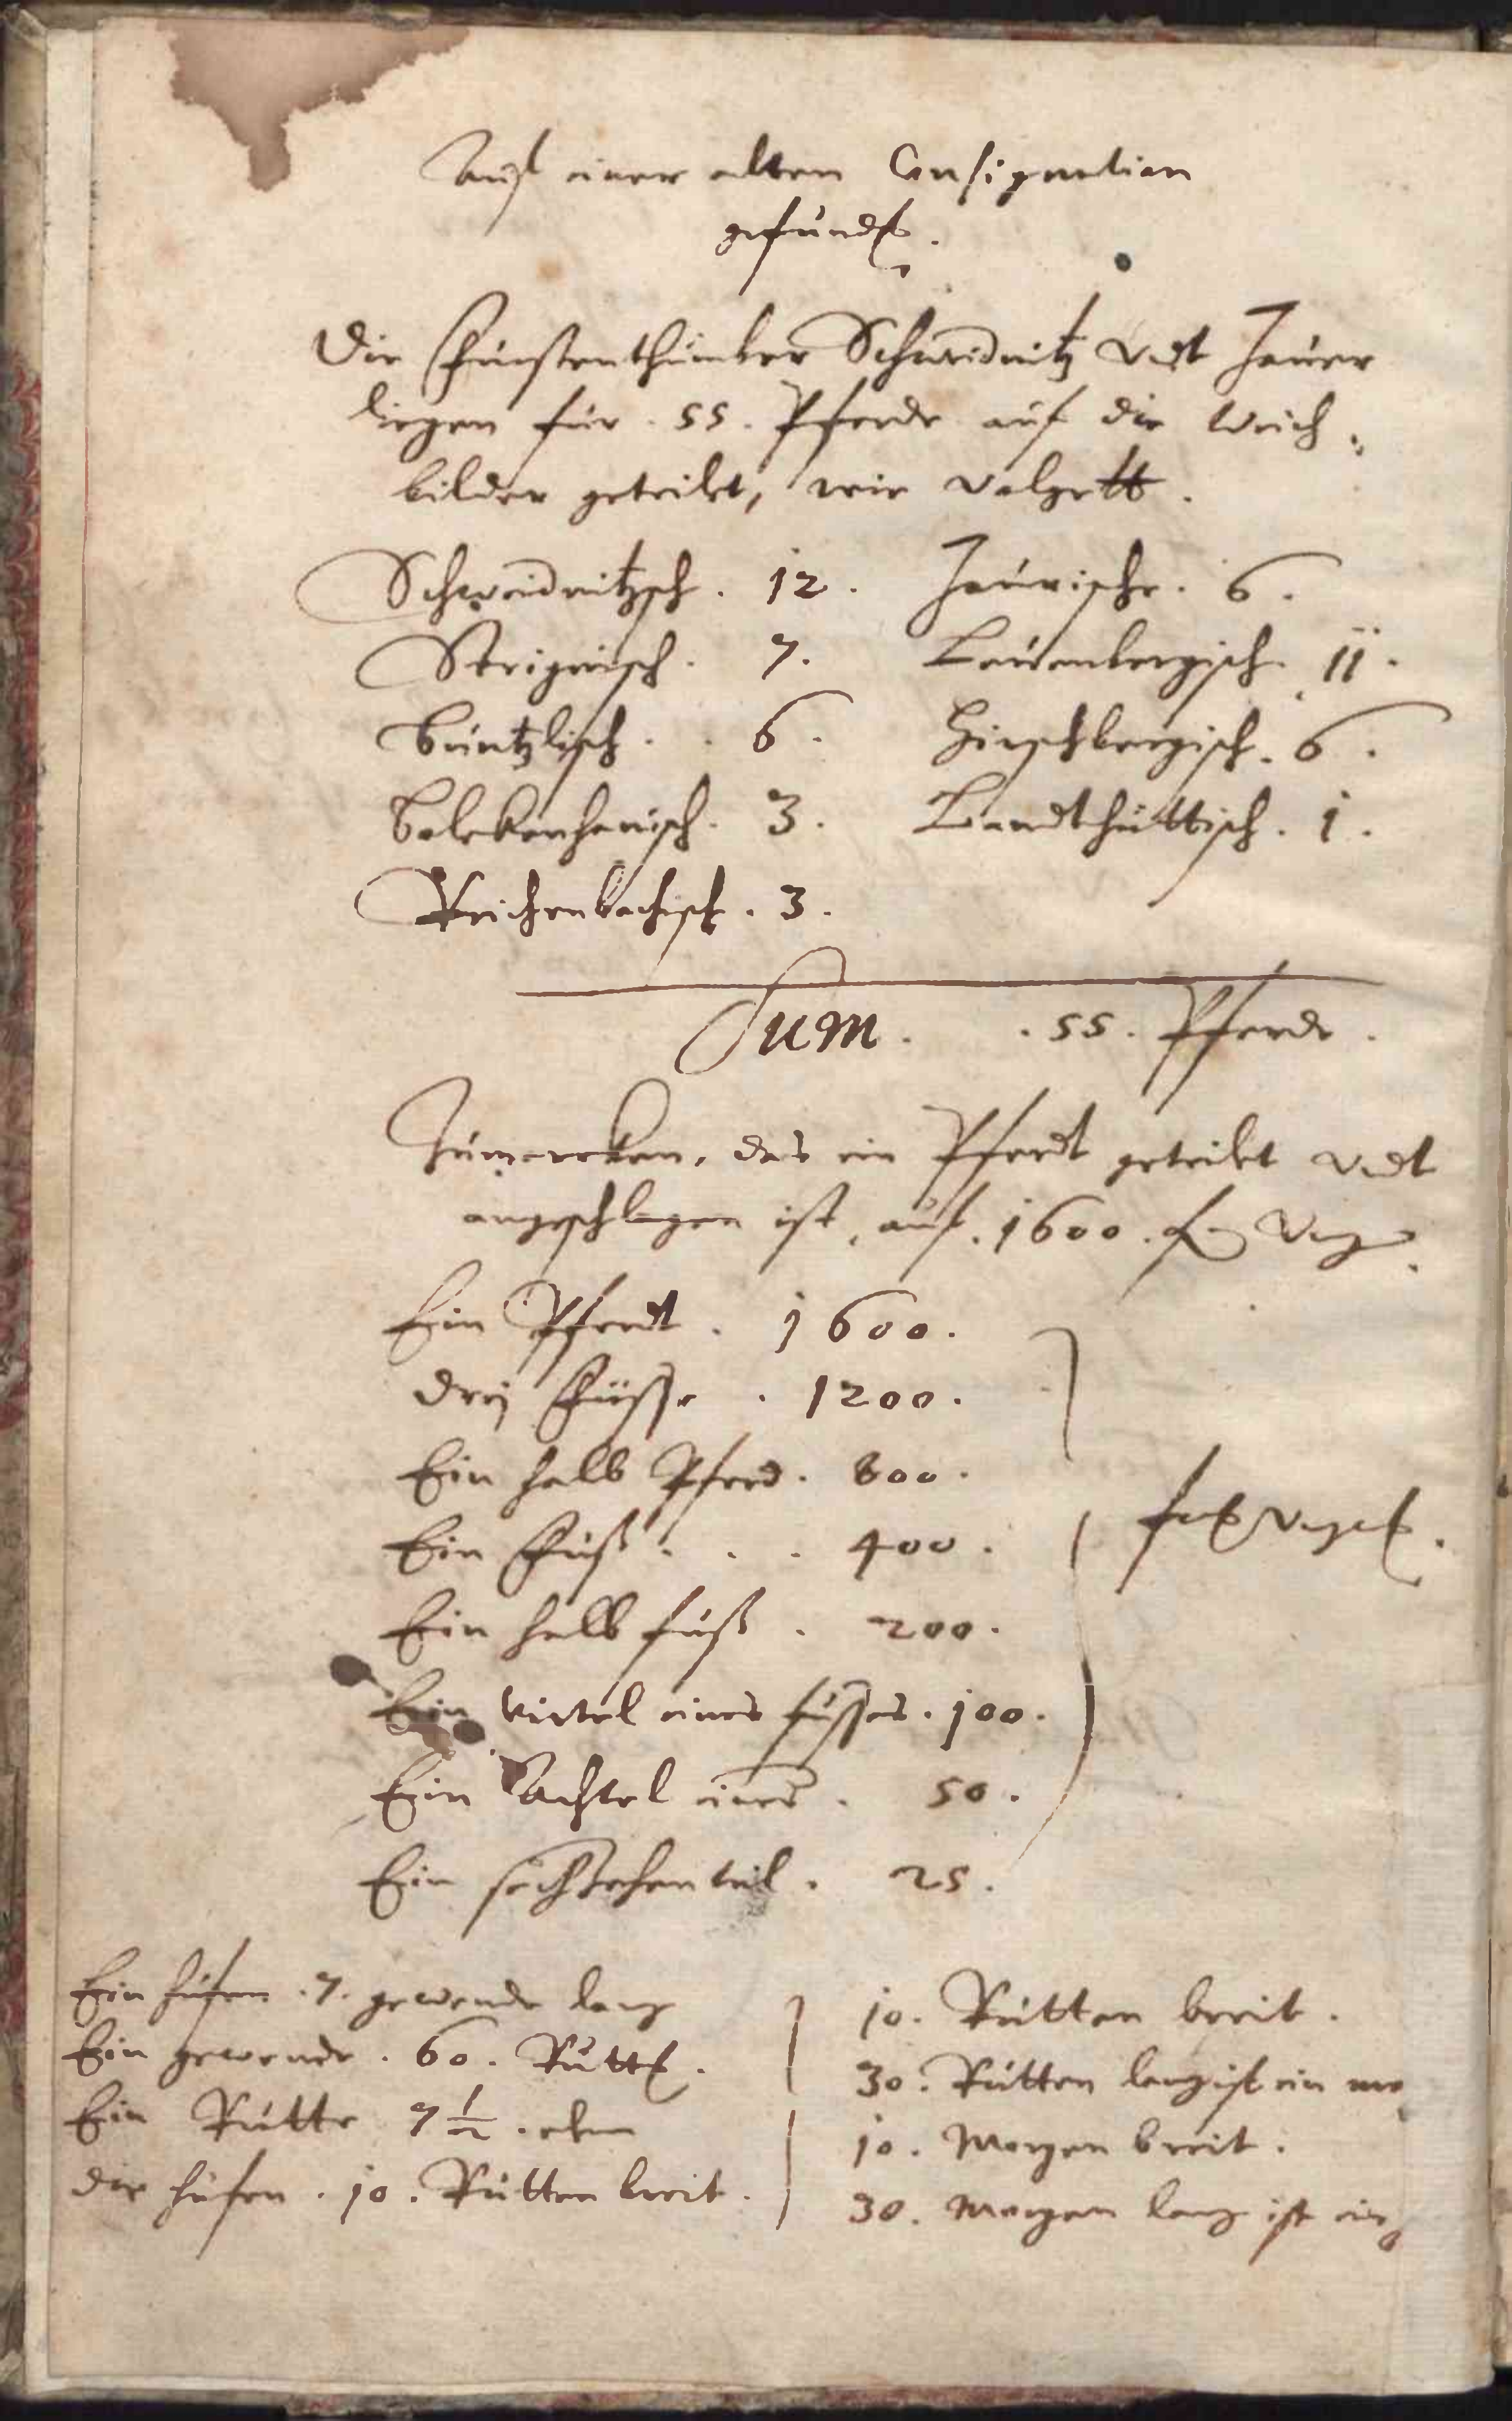 Auß einer alten Consignation
gefunden.
Die Fürstenthümber Schweidnitz vndt Jauer
liegen für . 55 . Pferde auf die Weich„
bilder geteilet, wie volgett.
Schweidnitzsch . 12 . Jaurische . 6 .
Strigauisch . 7 . Leuenbergisch . 11 .
Buntzlisch . . 6 . Hirschbergisch . 6 .
Bolckenhanisch . 3 . Landthüttisch . 1 .
Reichenbachisch . 3 .
Sum . . 55 . Pferde .
Zumercken, das ein Pferdt geteilet vndt
angeschlagen ist, auf . 1600 . fl Vng
Ein Pferdt . 1600 .
Drej Füsse . 1200 .
Ein halb Pferd . 800 .
Ein Fuß . . . 400 .
Ein halb fuß . 200 .
Ein virtel eines fusses . 100 .
Ein achtel eines . 50 .
Ein sechzehenteil . 25 .
Ein hufen . 7 . gewende lang
Ein gewende . 60 . Rutten .
Ein Rutte 7 1/2 . elen
die hufen . 10 . Rutten breit .
10 . Rutten breit .
30 . Rutten lang ist ein mo
10 . Morgen breit .
30 . Morgen lang ist ein